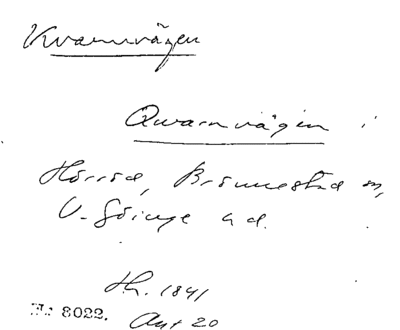 Kvarnvägen
Qwarnvägen i
Hörröd, Brönnestad sn,
V. Göinge hd.
Th. 1841
No 8022.
Akt 20